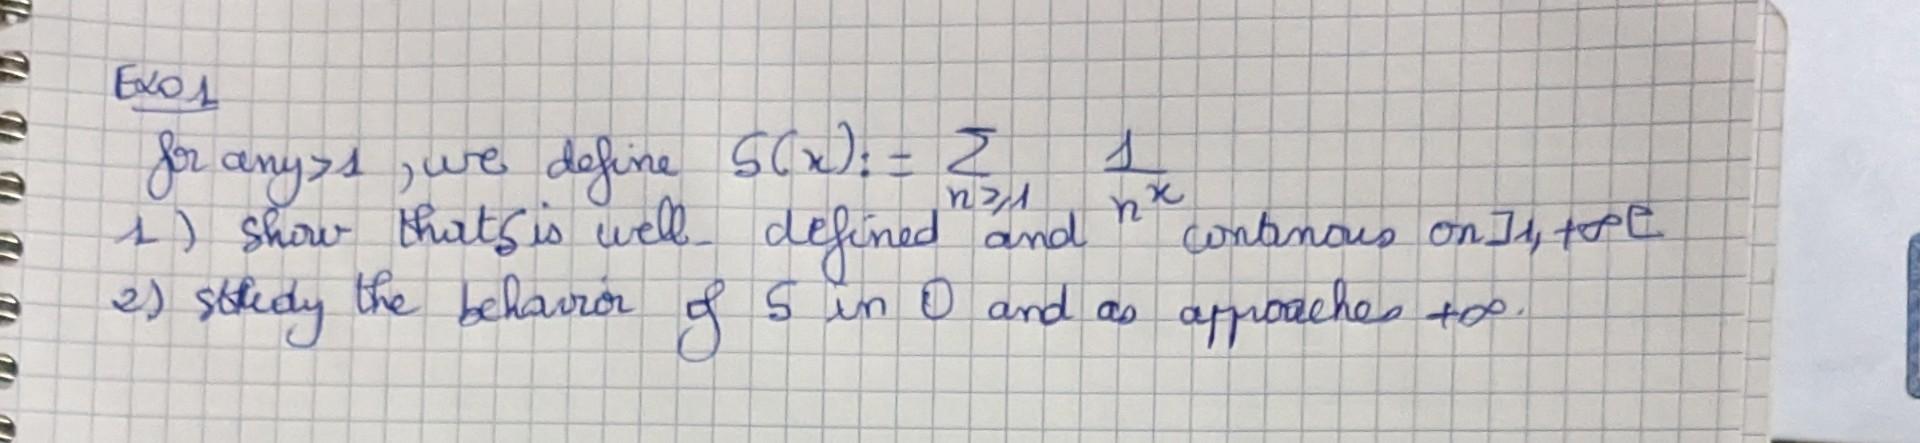 Exo 1
for any > 1, we define S(x) := Σ_{n≥1} 1/n^x
1) show that S is well defined and continous on ]1, +∞[
2) study the behavior of S in 0 and as approaches +∞.